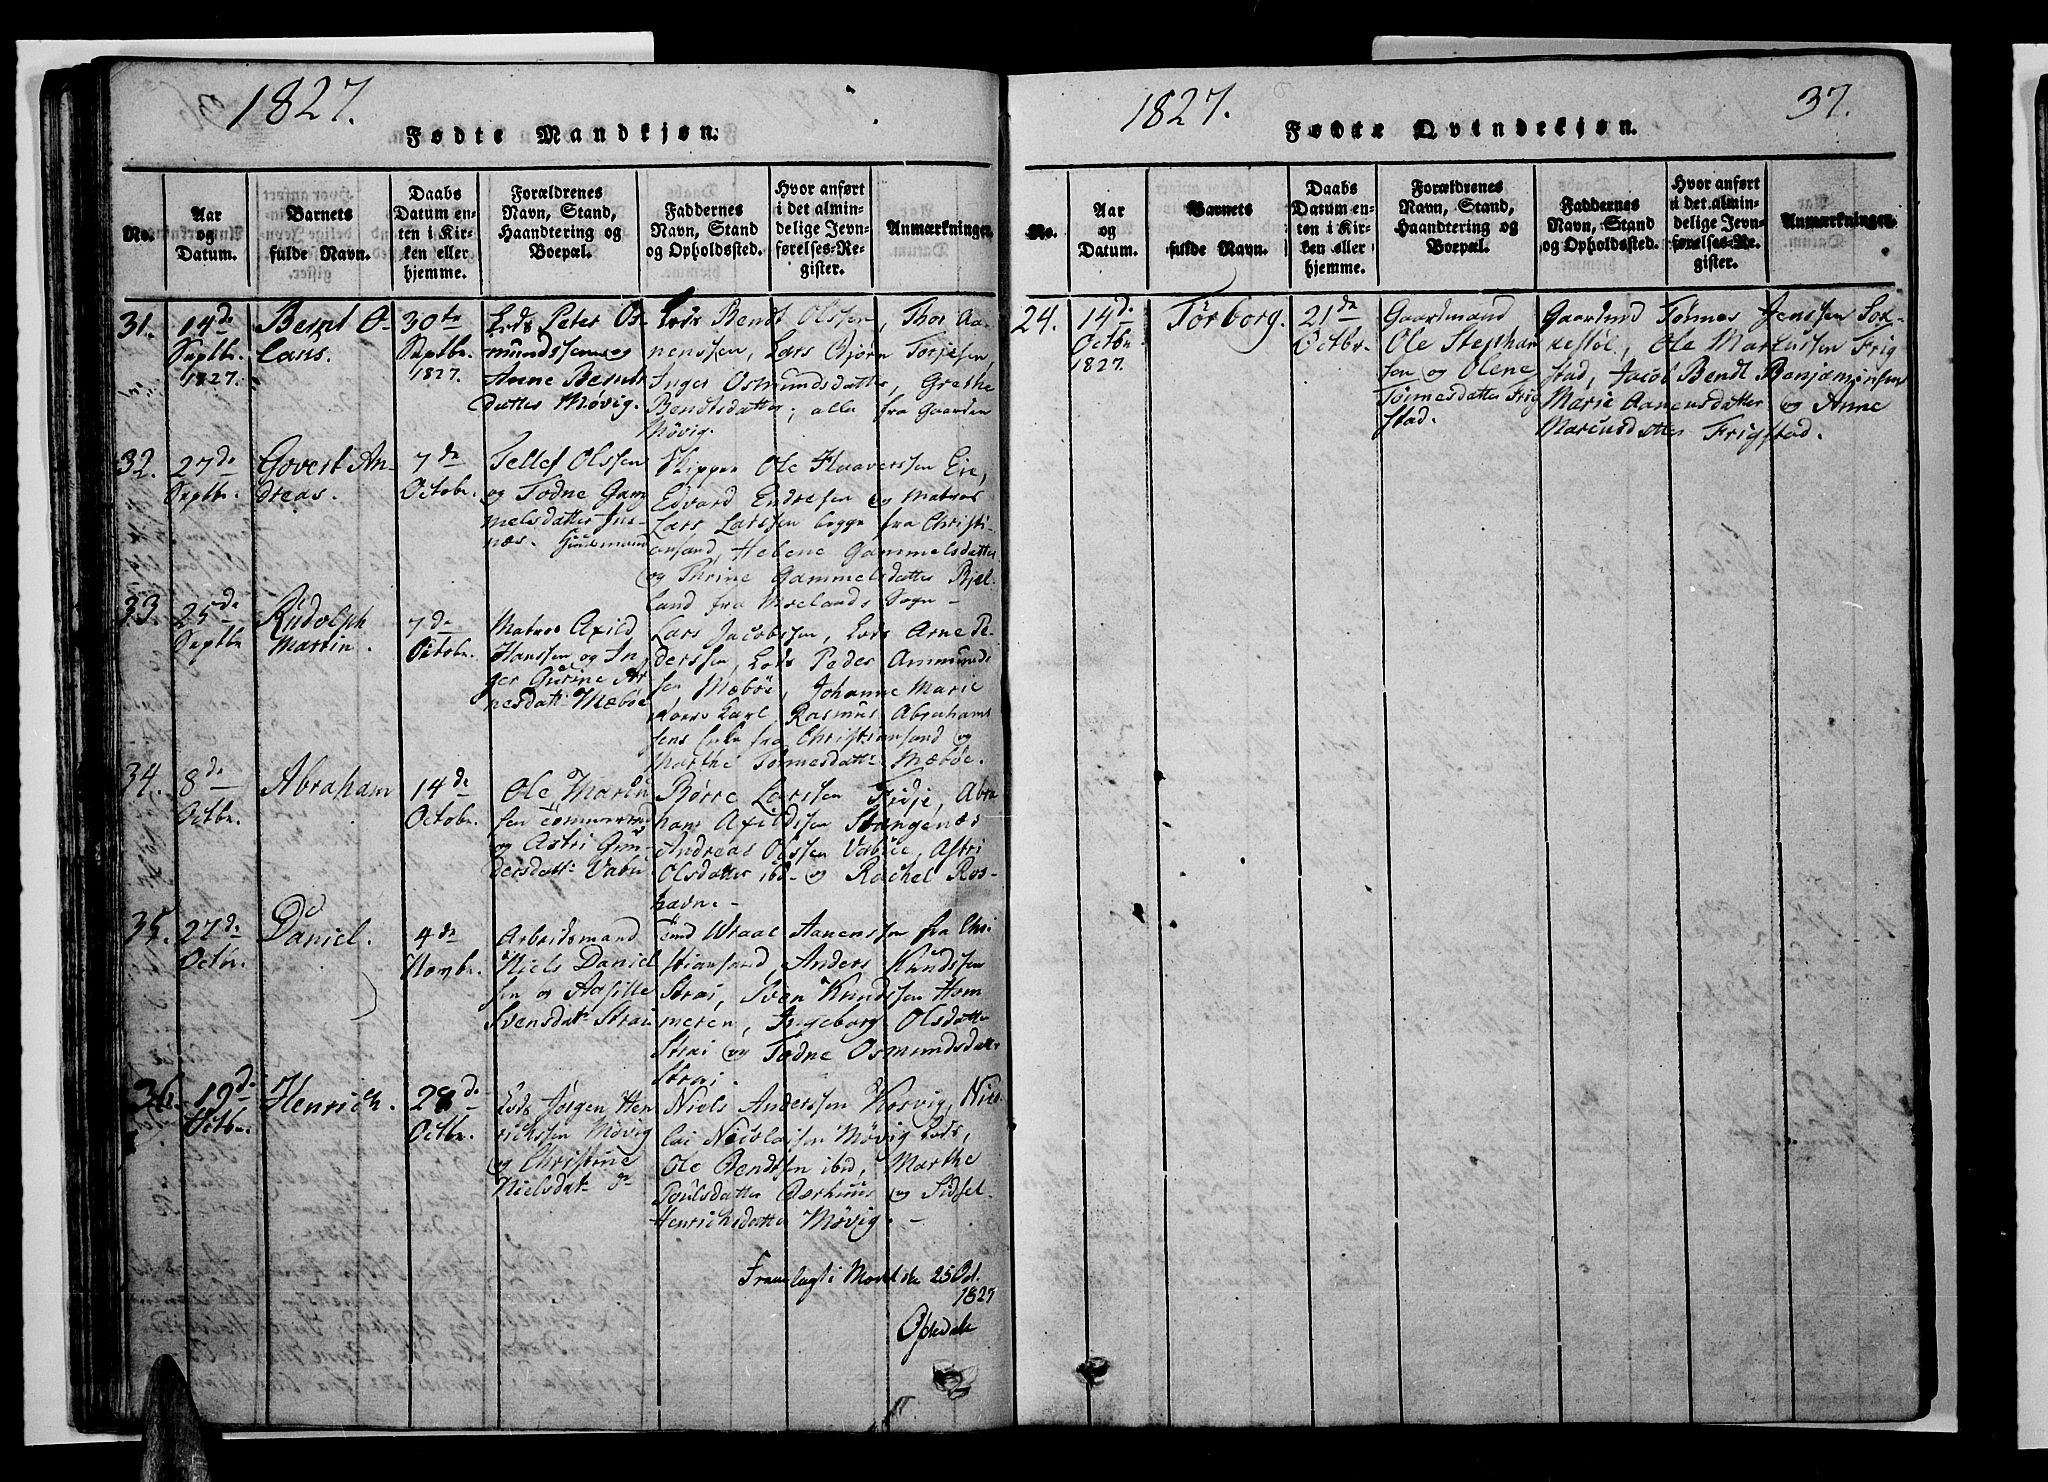 1827.
Fødte Mandkjøn.
No.
Aar
og
Datum.
Barnets
fulde Navn.
Daabs
Datum en-
ten i Kir-
ken eller
hjemme.
Forældrenes
Navn, Stand,
Haandtering og
Boepæl.
Faddernes
Navn, Stand
og Opholdssted.
Hvor anført
i det almin-
delige Jevn-
førelses-Re-
gister.
Anmærkninger.
31.
14de
Septbr.
1827.
Bernt O-
laus.
30te
Septbr.
1827.
Lods Peter Os-
mundssen og
Anne Bernts
datter Møvig.
Lods Bendt Olssen, Thor Aa-
nenssen, Lars Bjørn Torjesen,
Inger Osmundsdatter, Grethe
Bendtsdatter, alle fra Gaarden
Møvig.
32.
27de
Septbr.
Govert An-
dreas.
7de
Octobr.
Tellef Olssen
og Todne Gam
melsdatter
Huusmand
Skipper Ole Haaverssen Eie,
Edvard Endresen og Matros
Lars Larssen begge fra Christi-
ansand, Helene Gammelsdatter
og Thrine Gammelsdatter Bjel-
land fra Sogn -
33.
25de
Septbr
Rudolph
Martin.
7de
Octobr.
Matros Axild
Hanssen og In
ger Gurine Ar
nesdattr Mæbøe
Lars Jacobssen, Lods Arne Pe-
derssen, Lods Peder Ammunds
sen Mæbøe, Johanne Marie
Rasmus Abrahams
sens fra Christiansand og
Marthe Tønnesdatter Mæbøe.
34.
8de
Octbr.
Abraham
14de
Octobr.
Ole
sen
og Astri Gun
dersdattr
Børre Larssen Fidje, Abra
ham Axildssen Stangenæs
Andreas Olssen Vaböe, Astri
Olsdatter ibd- og Rachel Ros-
havn. -
35.
27de
Octbr.
Daniel.
4de
Novbr.
Arbeidsmand
Niels Daniel
sen og Aasille
Svensdatr Strai
Aanenssen fra Chri
stiansand, Anders Knudssen
Strai, Sven Knudssen Ham
meren, Ingeborg Olsdatter
Strai og Todne Osmundsdatr
Strai.
36.
19de
Octbr.
Henrich.
28de
Octbr.
Lods Jørgen Hen
richssen Møvig
og Christine
Nielsdatr
Niels Anderssen Kosvig, Nico-
lai Nicolaisen Møvig Lods,
Ole Bendtsen ibd, Marthe
Poulsdatter og Sidsel
Henrichsdatter Møvig. -
Fremlagt i Mødet de 25 Oct.
1827
1827.
37.
Fødte Qvindekjøn.
No.
Aar
og
Datum.
Barnets
fulde Navn.
Daabs
Datum en-
ten i Kir-
ken eller
hjemme.
Forældrenes
Navn, Stand,
Haandtering og
Boepæl.
Faddernes
Navn, Stand
og Opholdssted.
Hvor anført
i det almin-
delige Jevn-
førelses-Re-
gister.
Anmærkninger.
24.
14d.
Octbr
1827.
Torborg.
21de
Octbr.
Gaardmand
Ole Stephan
sen og Olene
Tønnesdatter Frig
stad.
Gaardmd Tønnes Jenssen
Ole Martinssen Frig
stad, Jacob Bendt Benjaminsen
Marie Aanensdatter og Anne
Marcusdatter Frigstad.